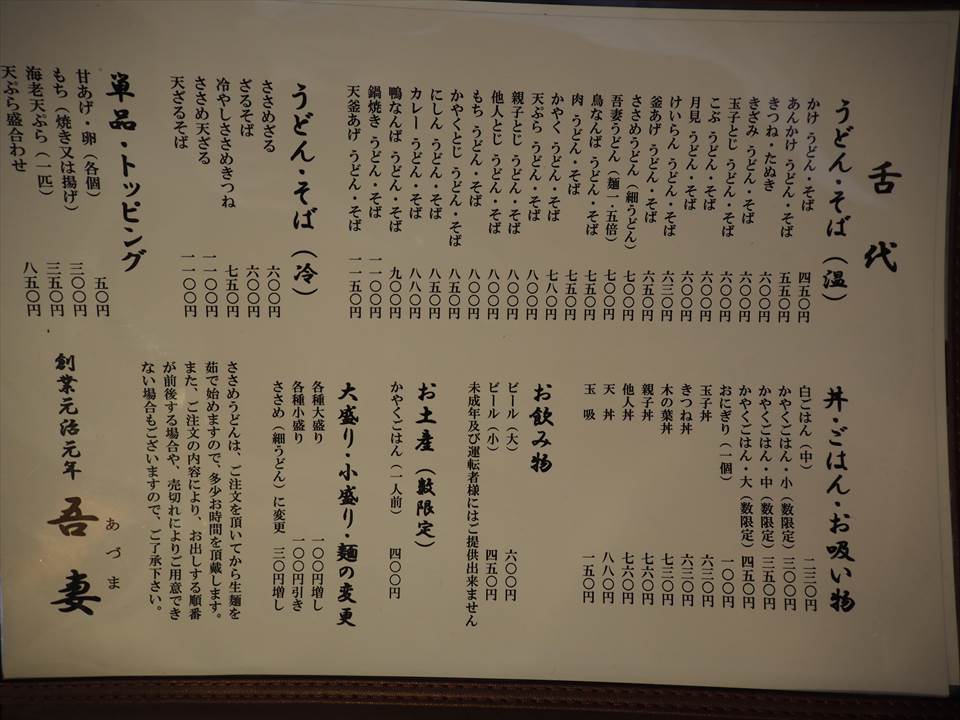 舌代
うどん・そば（温）
かけ うどん・そば 四五〇円
あんかけ うどん・そば 五五〇円
きつね・たぬき 六〇〇円
きざみ うどん・そば 六〇〇円
玉子とじ うどん・そば 六〇〇円
こぶ うどん・そば 六〇〇円
月見 うどん・そば 六〇〇円
けいらん うどん・そば 六三〇円
釜あげ うどん・そば 六五〇円
ささめうどん（細うどん） 七〇〇円
吾妻うどん（麺一・五倍） 七〇〇円
鳥なんば うどん・そば 七五〇円
肉 うどん・そば 七五〇円
かやく うどん・そば 七八〇円
天ぷら うどん・そば 八〇〇円
親子とじ うどん・そば 八〇〇円
他人とじ うどん・そば 八〇〇円
もち うどん・そば 八〇〇円
かやくとじ うどん・そば 八五〇円
にしん うどん・そば 八五〇円
カレー うどん・そば 八八〇円
鴨なんば うどん・そば 九〇〇円
鍋焼き うどん・そば 一一〇〇円
天釜あげ うどん・そば 一一五〇円
うどん・そば（冷）
ささめざる 六〇〇円
ざるそば 六〇〇円
冷やしささめきつね 七五〇円
ささめ天ざる 一一〇〇円
天ざるそば 一一〇〇円
単品・トッピング
甘あげ・卵（各個） 五〇円
もち（焼き又は揚げ） 三〇〇円
海老天ぷら（一匹） 三五〇円
天ぷら盛合わせ 八五〇円
丼・ごはん・お吸い物
白ごはん（中） 二三〇円
かやくごはん・小（数限定） 三〇〇円
かやくごはん・中（数限定） 三五〇円
かやくごはん・大（数限定） 四五〇円
おにぎり（一個） 一〇〇円
玉子丼 六三〇円
きつね丼 六三〇円
木の葉丼 七三〇円
親子丼 七六〇円
他人丼 七六〇円
天丼 八八〇円
玉吸 一五〇円
お飲み物
ビール（大） 六〇〇円
ビール（小） 四五〇円
未成年及び運転者様にはご提供出来ません
お土産（数限定）
かやくごはん（一人前） 四〇〇円
大盛り・小盛り・麺の変更
各種大盛り 一〇〇円増し
各種小盛り 一〇〇円引き
ささめ（細うどん）に変更 三〇円増し
ささめうどんは、ご注文を頂いてから生麺を
茹で始めますので、多少お時間を頂戴します。
また、ご注文の内容により、お出しする順番
が前後する場合や、売切れによりご用意でき
ない場合もございますので、ご了承下さい。
創業元治元年 吾妻
あづま